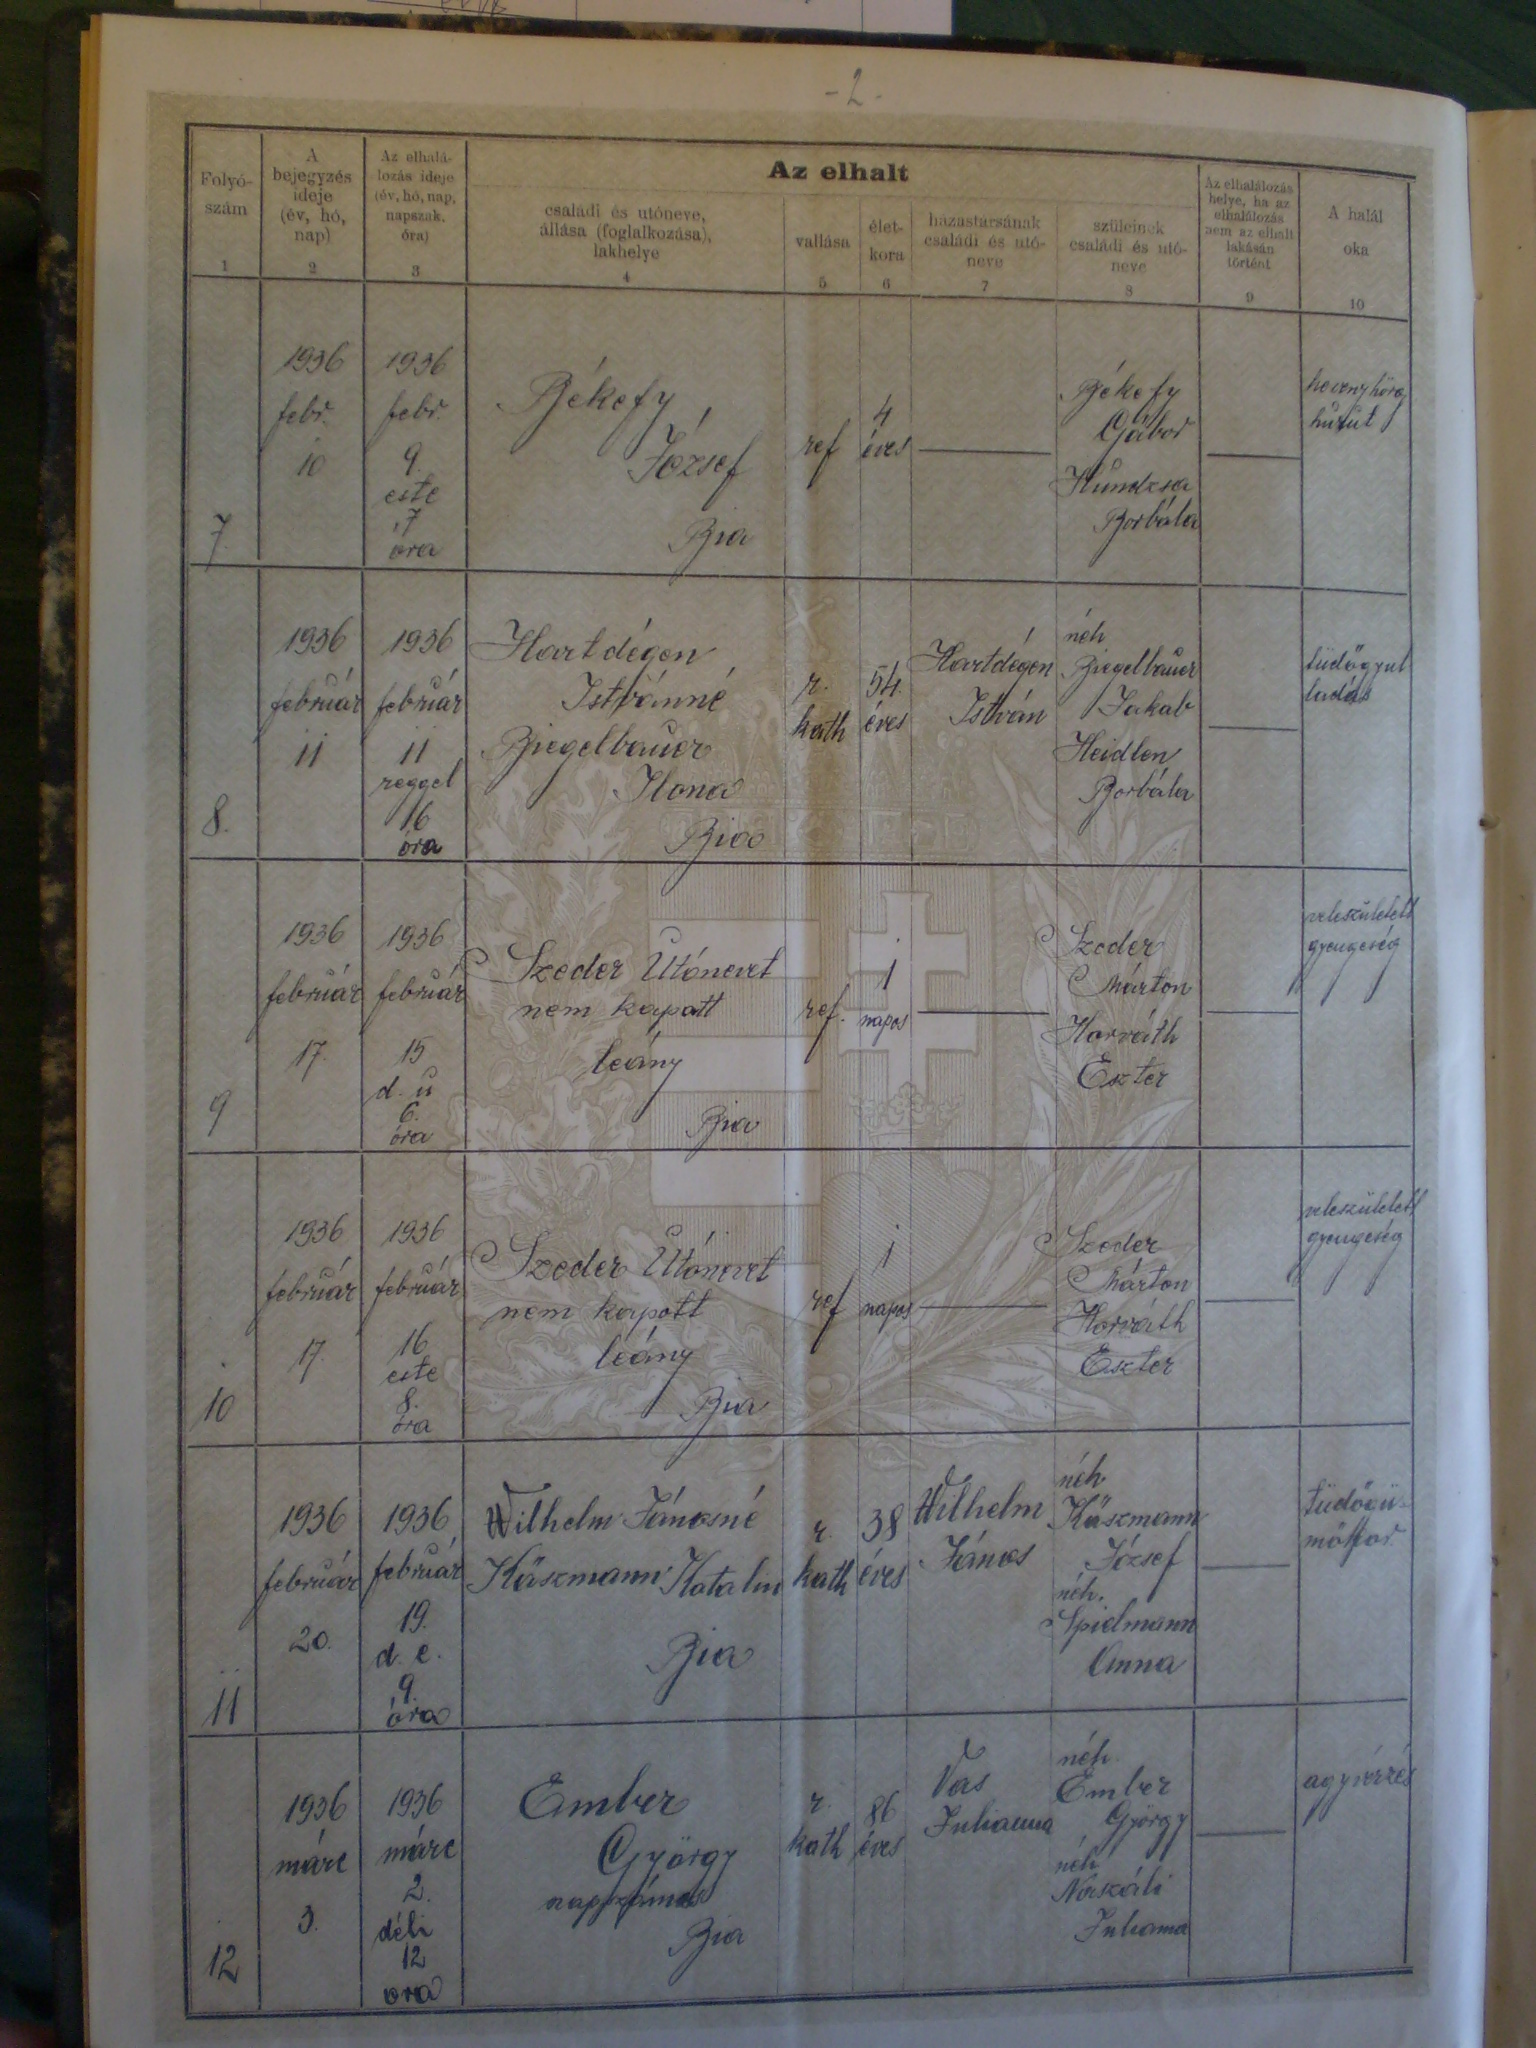 - 2 -
Az elhalt
Folyó-
szám
1
A
bejegyzés
ideje
(év, hó,
nap)
2
Az elhalá-
lozás ideje
(év, hó, nap,
napszak,
óra)
3
családi és utóneve,
állása (foglalkozása),
lakhelye
4
vallása
5
élet-
kora
6
házastársának
családi és utó-
neve
7
szüleinek
családi és utó-
neve
8
Az elhalálozás
helye, ha az
elhalálozás
nem az elhalt
lakásán
történt
9
A halál
oka
10
7
1936
febr.
10
1936
febr.
9.
este
7
óra
Békefy
József
Bia
ref
4
éves
Békefy
Gábor
Kundzsa
Borbála
hevenyhörg
hurut
8.
1936
február
11
1936
február
11
reggel
óra
Hartdégen
Istvánné
Biegelbauer
Ilona
Bia
r.
kath
54.
éves
Hartdégen
István
néh
Biegelbauer
Jakab
Heidlen
Borbála
tüdőgyul
ladás
9
1936
február
17.
1936
február
15
d. u
6.
óra
Szeder Utónevet
nem kapott
leány
Bia
ref.
1
napos
Szeder
Márton
Horváth
Eszter
veleszületett
gyengeség
10
1936
február
17.
1936
február
16
este
8.
óra
Szeder Utónevet
nem kapott
leány
Bia
ref
1
napos
Szeder
Márton
Horváth
Eszter
veleszületett
gyengeség
11
1936
február
20.
1936
február
19.
d. e.
9.
óra
Wilhelm Jánosné
Käszmann Katalin
Bia
r.
kath
38
éves
Wilhelm
János
néh
Käszmann
József
néh.
Spielmann
Anna
tüdőgü-
mőkor
12
1936
márc
3.
1936
márc
2.
déli
12
óra
Ember
György
napszámos
Bia
r.
kath
86
éves
Vas
Julianna
néh.
Ember
György
néh
Naszáli
Julianna
agyvérzés